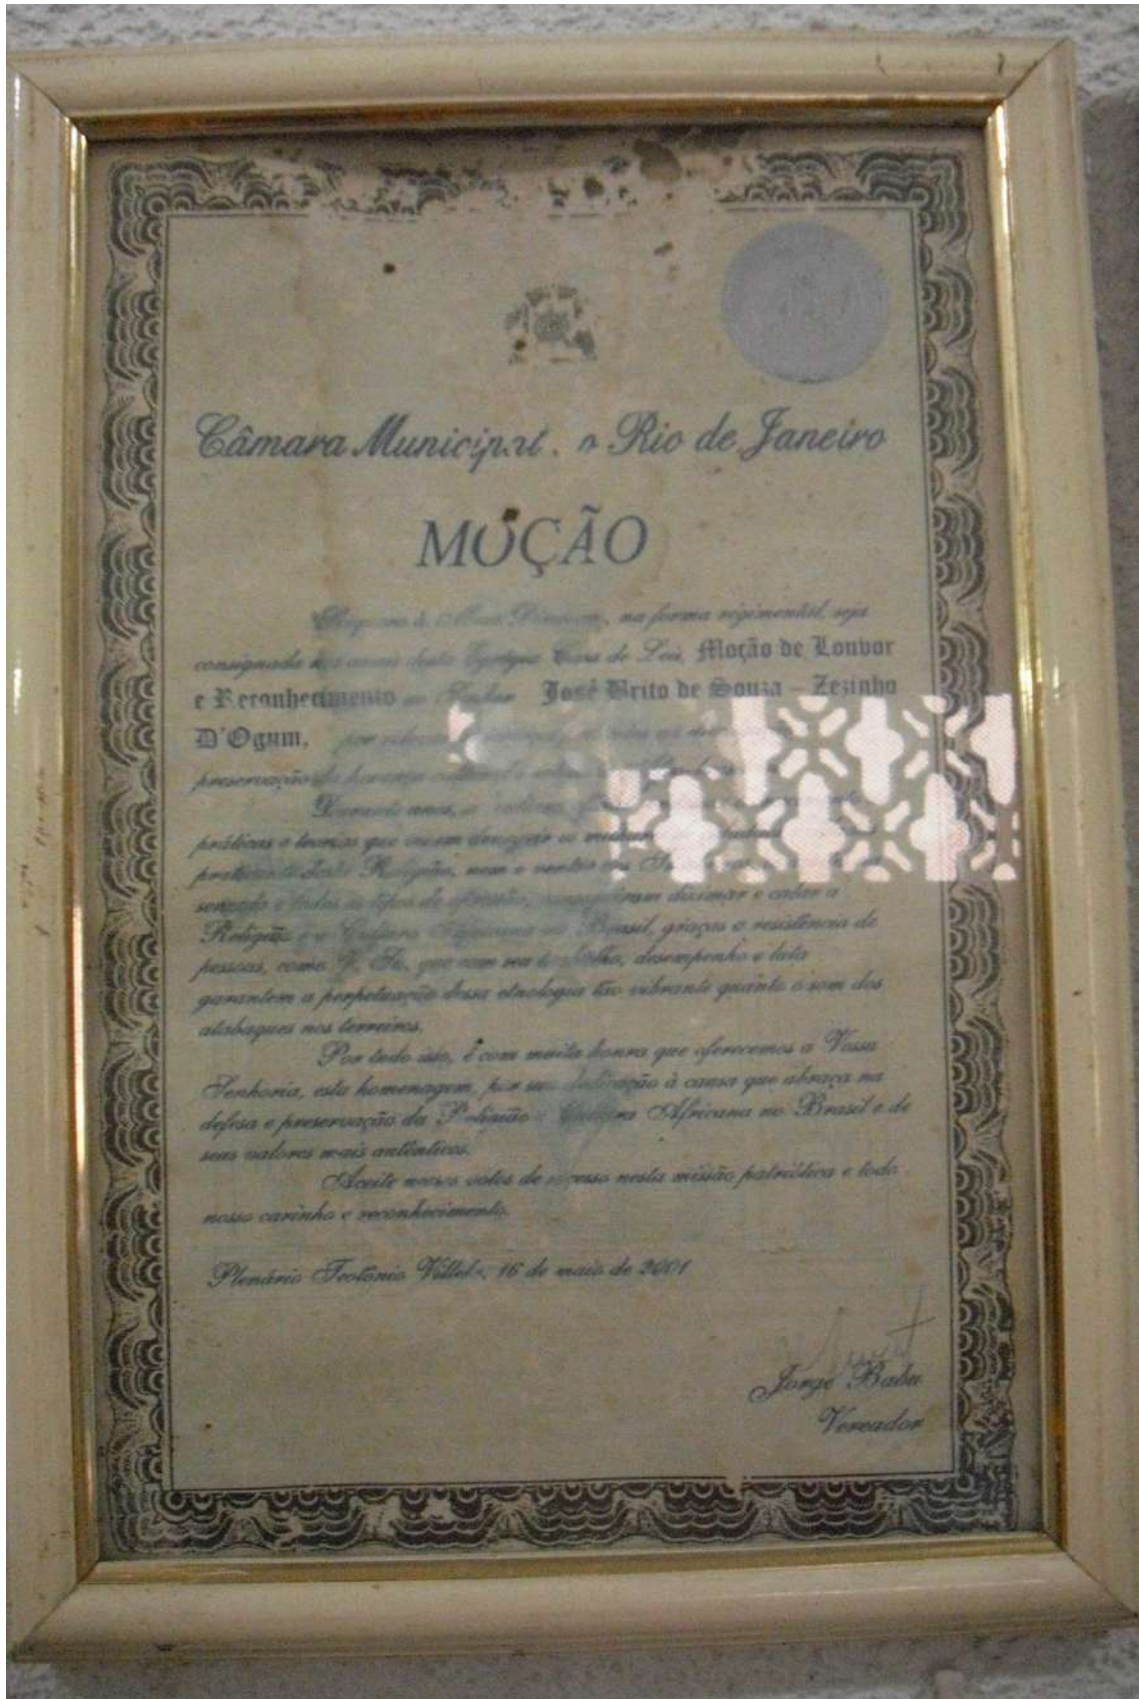 Câmara Municipal Rio de Janeiro
MOÇÃO
Requeiro à Mesa Diretora, na forma regimental, seja
consignada nos anais desta Egrégia Casa de Leis, Moção de Louvor
e Reconhecimento ao Senhor José Brito de Souza – Zezinho
D'Ogum, por
preservação da herança cultural
Durante anos, a
práticas e teorias que
praticante desta Religião, nem o
e todos os tipos de conseguiram dizimar e calar a
Religião e a Cultura Africana no Brasil, graças a resistência de
pessoas, como V. Sa, que com seu trabalho, desempenho e luta
garantem a perpetuação dessa etnologia tão vibrante quanto o som dos
atabaques nos terreiros.
Por tudo isto, é com muita honra que oferecemos a Vossa
Senhoria, esta homenagem, por sua dedicação à causa que abraça na
defesa e preservação da Religião e Cultura Africana no Brasil e de
seus valores mais autênticos.
Aceite nossos votos de sucesso nesta missão patriótica e todo
nosso carinho e reconhecimento.
Plenário Teotônio Villela, 16 de maio de 2001
Jorge Babu
Vereador